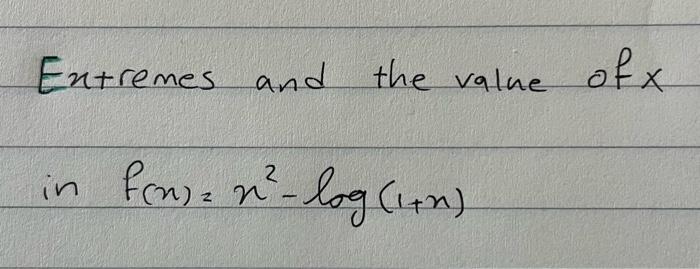 Extremes and the value of x
in f(x) = x² - log (1+x)